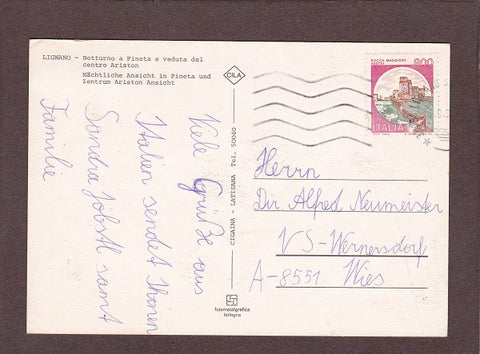 LIGNANO - Notturno a Pineta e veduta del
centro Ariston
Nächtliche Ansicht in Pineta und
Zentrum Ariston Ansicht
CILA
Viele Grüße aus
Italien sendet Ihnen
Sandra Jöbstl samt
Familie
CIGAINA - LATISANA Tel. 50040
fotometalgrafica
bologna
ROCCA MAGGIORE
ASSISI
600
ITALIA
Herrn
Dir. Alfred Neumeister
VS-Wernersdorf
A-8551 Wies